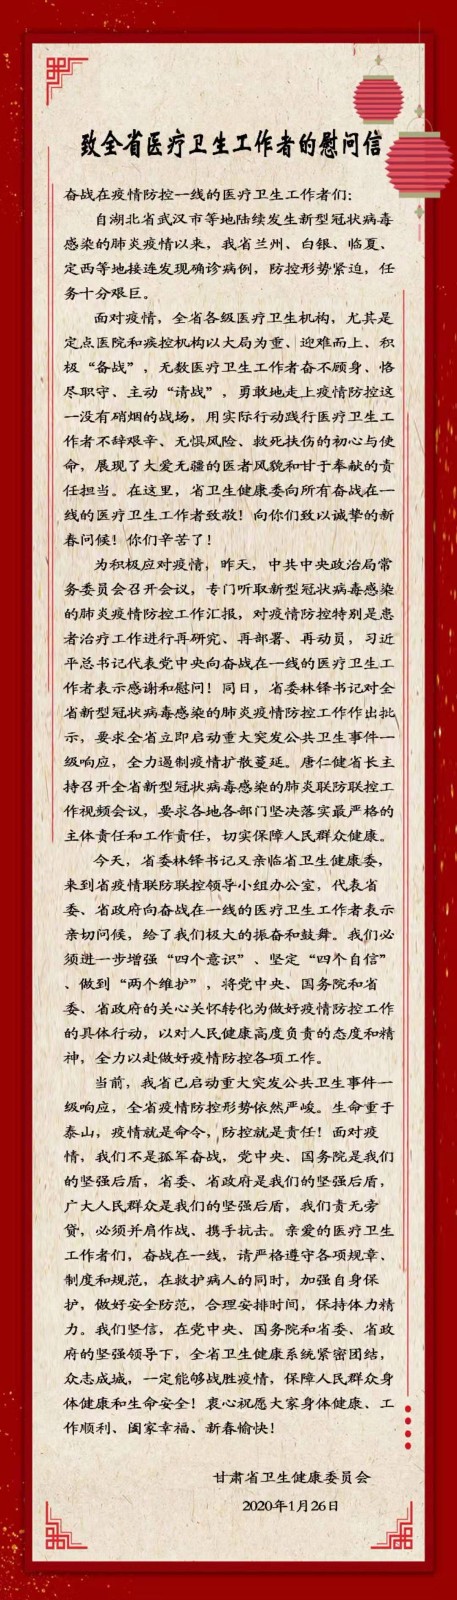 致全省医疗卫生工作者的慰问信
奋战在疫情防控一线的医疗卫生工作者们：
自湖北省武汉市等地陆续发生新型冠状病毒
感染的肺炎疫情以来，我省兰州、白银、临夏、
定西等地接连发现确诊病例，防控形势紧迫，任
务十分艰巨。
面对疫情，全省各级医疗卫生机构，尤其是
定点医院和疾控机构以大局为重、迎难而上、积
极“备战”，无数医疗卫生工作者奋不顾身、恪
尽职守、主动“请战”，勇敢地走上疫情防控这
一没有硝烟的战场，用实际行动践行医疗卫生工
作者不辞艰辛、无惧风险、救死扶伤的初心与使
命，展现了大爱无疆的医者风貌和甘于奉献的责
任担当。在这里，省卫生健康委向所有奋战在一
线的医疗卫生工作者致敬！向你们致以诚挚的新
春问候！你们辛苦了！
为积极应对疫情，昨天，中共中央政治局常
务委员会召开会议，专门听取新型冠状病毒感染
的肺炎疫情防控工作汇报，对疫情防控特别是患
者治疗工作进行再研究、再部署、再动员，习近
平总书记代表党中央向奋战在一线的医疗卫生工
作者表示感谢和慰问！同日，省委林铎书记对全
省新型冠状病毒感染的肺炎疫情防控工作作出批
示，要求全省立即启动重大突发公共卫生事件一
级响应，全力遏制疫情扩散蔓延。唐仁健省长主
持召开全省新型冠状病毒感染的肺炎联防联控工
作视频会议，要求各地各部门坚决落实最严格的
主体责任和工作责任，切实保障人民群众健康。
今天，省委林铎书记又亲临省卫生健康委，
来到省疫情联防联控领导小组办公室，代表省
委、省政府向奋战在一线的医疗卫生工作者表示
亲切问候，给了我们极大的振奋和鼓舞。我们必
须进一步增强“四个意识”、坚定“四个自信”
、做到“两个维护”，将党中央、国务院和省
委、省政府的关心关怀转化为做好疫情防控工作
的具体行动，以对人民健康高度负责的态度和精
神，全力以赴做好疫情防控各项工作。
当前，我省已启动重大突发公共卫生事件一
级响应，全省疫情防控形势依然严峻。生命重于
泰山，疫情就是命令，防控就是责任！面对疫
情，我们不是孤军奋战，党中央、国务院是我们
的坚强后盾，省委、省政府是我们的坚强后盾，
广大人民群众是我们的坚强后盾，我们责无旁
贷，必须并肩作战、携手抗击。亲爱的医疗卫生
工作者们，奋战在一线，请严格遵守各项规章、
制度和规范，在救护病人的同时，加强自身保
护，做好安全防范，合理安排时间，保持体力精
力。我们坚信，在党中央、国务院和省委、省政
府的坚强领导下，全省卫生健康系统紧密团结，
众志成城，一定能够战胜疫情，保障人民群众身
体健康和生命安全！衷心祝愿大家身体健康、工
作顺利、阖家幸福、新春愉快！
甘肃省卫生健康委员会
2020年1月26日